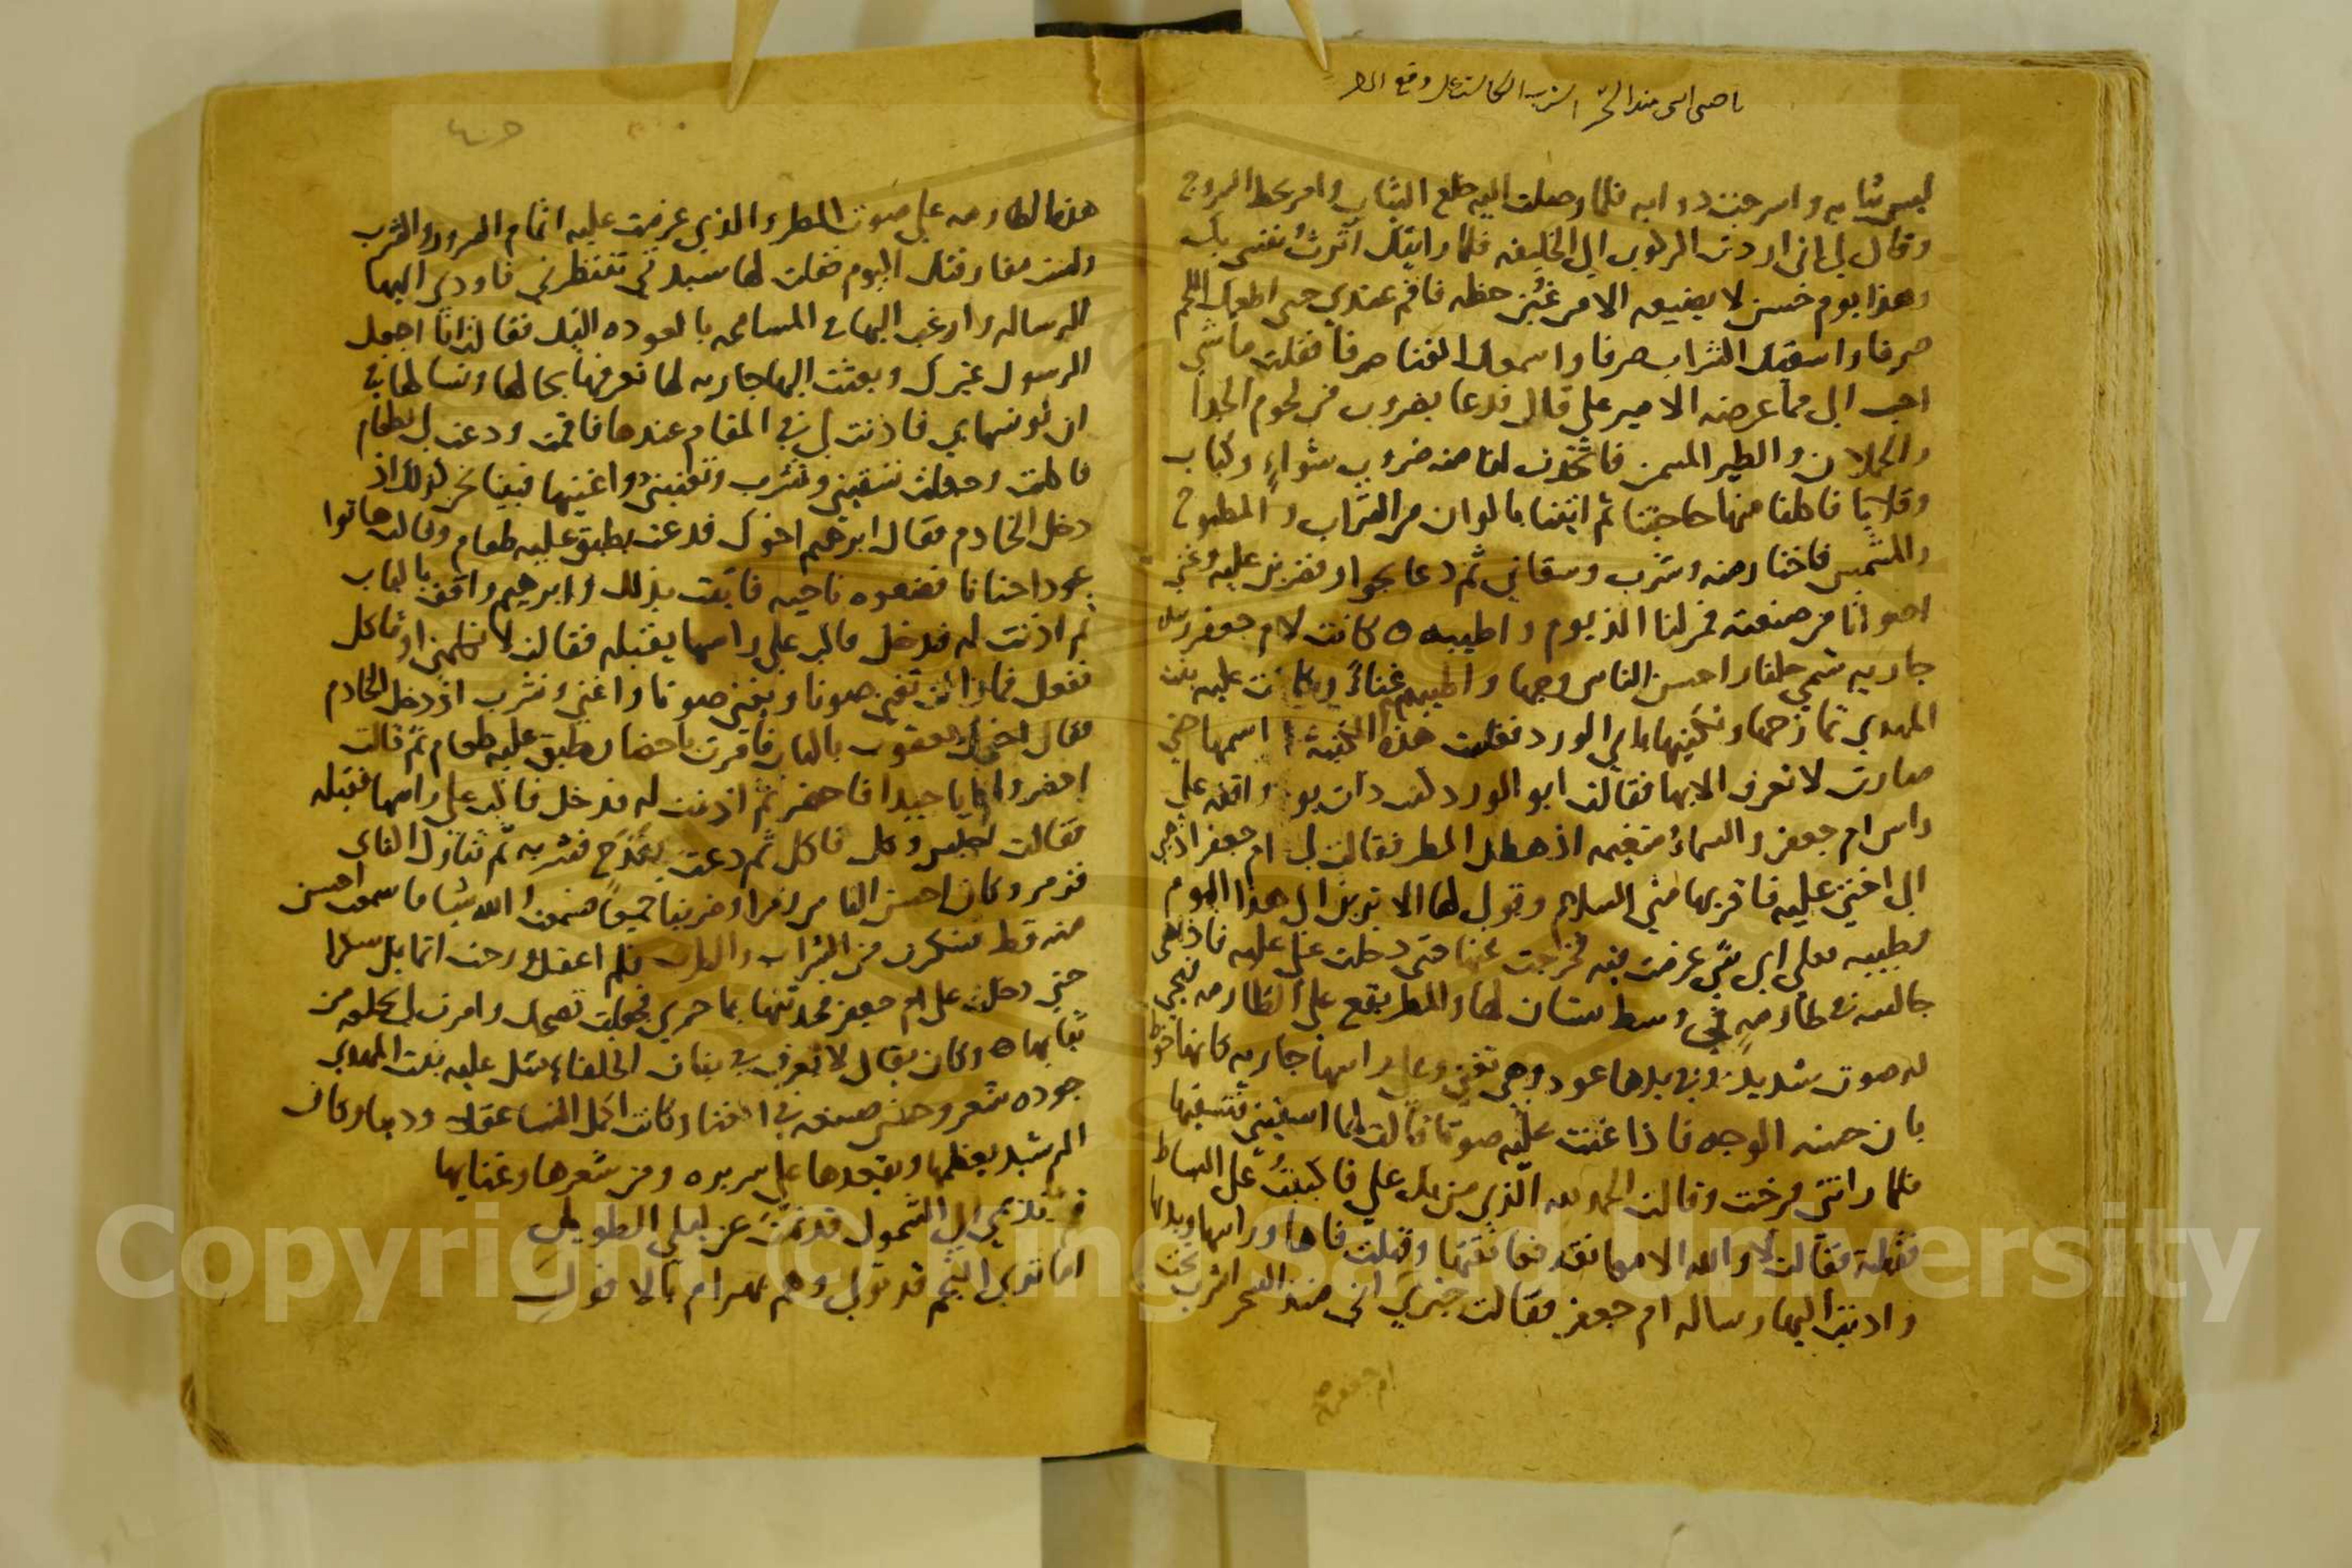 لبس ثيابه واسرجت دوابه فلما وصلت اليه خلع الثياب وامر بحط السروج
وقال لي اني اردت الركوب الي الخليفه فلما رايتك آثرتُ نفسي بك
وهذا يوم حسن لا يضيعه الا من غُبِن حظه فاقم عندي حتى اطعمك اللحم
صرفا واسقيك الشراب صرفا واسمعك الغنا صرفا فقلت ما شي
احب الي مما عرضه الامير علي قال فدعا بضروب من لحوم الجدا
والحملان والطير المسمن فاتخذت لنا منه ضروب شواءٍ وكباب
وقلايا فاكلنا منها حاجتنا ثم اتينا بالوان من الشراب والمطبوخ
والمشمس فاختار منه وشرب وسقاني ثم دعا بجوار فضربن عليه وغني
اصواتا من صنعته فمر لنا الذ يوم واطيبه ه كانت لام جعفر
جاريه تسمي جلنار احسن الناس وجها واطيبهم غناءً وكانت عليه بنت
المهدي تمازحها وتكنيها بابي الورد فغلبت هذه الكنية اسمها حتي
صارت لا تعرف الا بها فقالت ابو الورد كنت ذات يوم واقفه علي
راس ام جعفر والسماءُ متغيمه اذ هطل المطر فقالت لي ام جعفر اذهبي
الي اختي عليه فاقريها مني السلام وقولي لها الا ترين الي هذا اليوم
وطيبه فعلي اي شي عزمت فيه فخرجت عنها حتى دخلت علي عليه فاذا هي
جالسه في طارمهٍ في وسط بستان لها والمطر يقع علي الطارمه فيجي
له صوت شديد وفي يدها عود وهي تغني وعلي راسها جاريه كانها خوط
بان حسنه الوجه فاذا غنت عليه صوتا قالت لها اسقيني فتسقيها
فلما راتني فرحت وقالت الحمد لله الذي من بك علي فاكببتُ علي البساط
فقبلته فقالت لا والله الا معانقه فعانقتها وقبلت فاها وراسها ويدها
واديت اليها رساله ام جعفر فقالت خبريها اني منذ السحر اشرب تحت
ام جعفر
هذه الطارمه علي صوت المطر والذي عزمت عليه اتمام السرور والشرب
ولست مفارقتك اليوم فقلت لها سيدتي تنتظرني فاودي اليها
الرسالة وارغب اليها في المسامحه بالعوده اليك فقالت انا اجعل
الرسول غيرك وبعثت اليها جاريه لها تعرفها بحالها ونسالها في
ان تونسها بي فاذنت لي في المقام عندها فاقمت ودعت لي بطعام
فاكلت وجعلت تسقيني ونشرب وتغنيني واغنيها فبينا نحن كذلك اذ
دخل الخادم فقال ابرهيم اخوك فدعت بطبق عليه طعام وقالت هاتوا
ثم اذنت له فدخل فاكب علي راسها يقبله فقالت لا تكلمني او تاكل
ففعل فما زالت تغني صوتا ويغني صوتا واغني ونشرب اذ دخل الخادم
فقال اخوك يعقوب بالباب فامرت باحضار طبق عليه طعام ثم قالت
احضروا نايا جيدا فاحضر ثم اذنت له فدخل فاكب علي راسها فقبله
فقالت اجلس وكل فاكل ثم دعت بقدحٍ فشربه ثم تناول الناي
فزمر وكان احسن الناس زمرا وضربنا جميعاً فسمعت والله شيا ما سمعت احسن
منه قط فسكرت من الشراب والطرب فلم اعقل ورحت اتمايل سكرا
حتي دخلت علي ام جعفر فحدثتها بما جري فجعلت تضحك وامرت لي بخلعه من
ثيابها ه وكان يقال لا يعرف في بنات الخلفاء مثل عليه بنت المهدي
جوده شعر وحسن صنعه في الغناء وكانت اكمل النسا عقلا ودينا وكان
الرشيد يعظمها ويقعدها علي سريره ومن شعرها وغنايها
قم يا نديمي الي الشمول قد نمتَ عن ليلي الطويل
اما تري النجم قد تولي وهم بهرام بالافول
Copyright © King Saud University